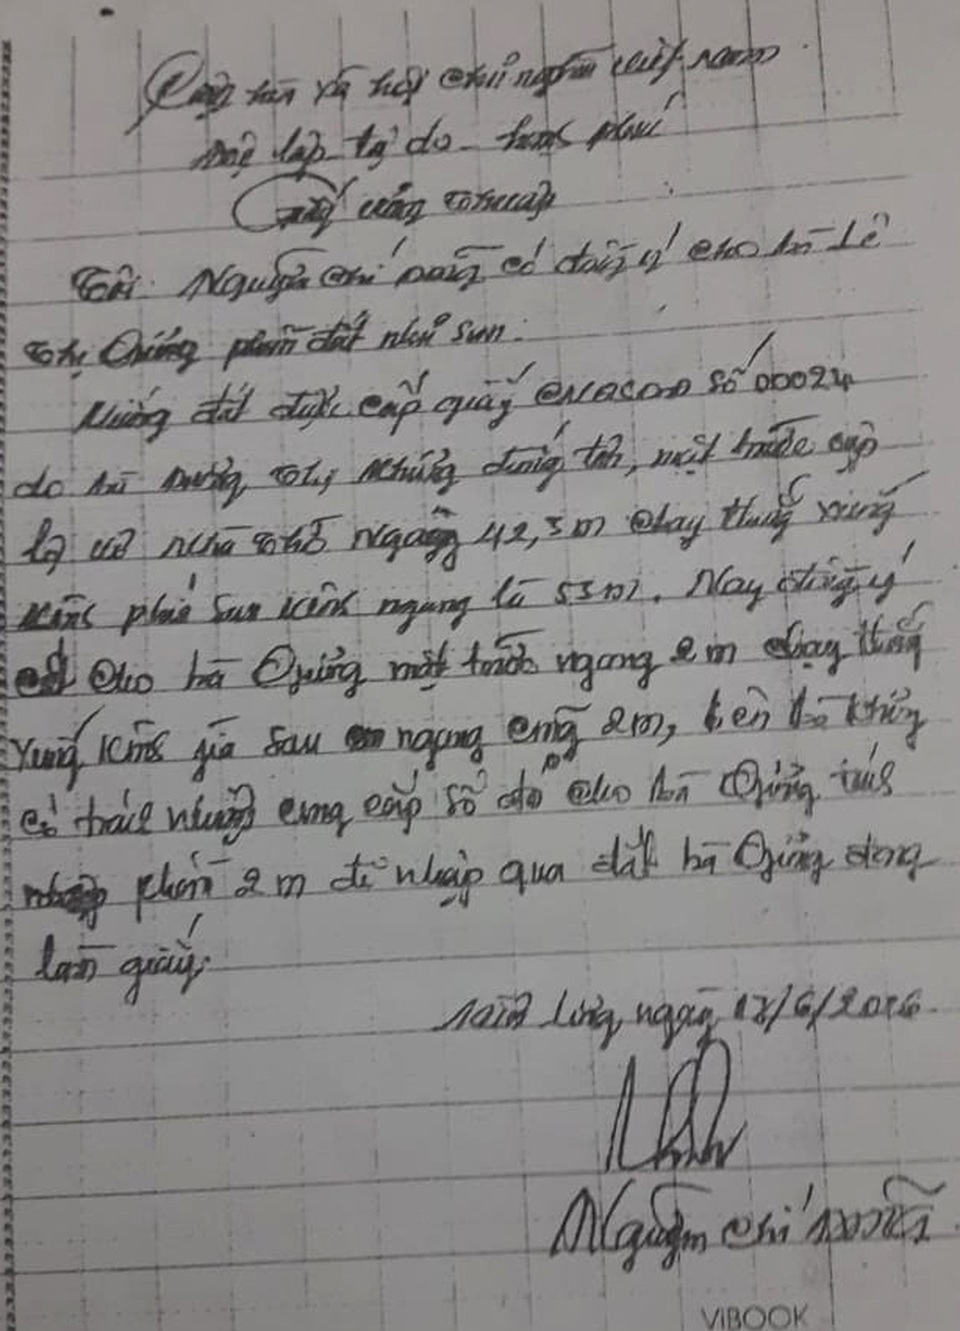 Cộng hòa xã hội chủ nghĩa việt nam
độc lập - tự do - hạnh phúc
Giấy thỏa thuận
Tôi: Nguyễn Chí có đồng ý cho bà Lê
Thị phần đất như sau:
đất được cấp giấy CNQSDĐ số 00024
do bà Dương Thị đứng tên, mặt trước cặp
lộ nhà thờ ngang 42,5m chạy thẳng xuống
kênh phía sau kênh ngang là 53m. Nay đồng ý
cho bà mặt trước ngang 2m chạy thẳng
xuống kênh phía sau ngang cũng 2m, bên bà
có trách nhiệm cung cấp sổ đỏ cho bà tách
phần 2m để nhập qua đất bà đang
làm giấy.
ngày /6/2016.
Nguyễn Chí
VIBOOK